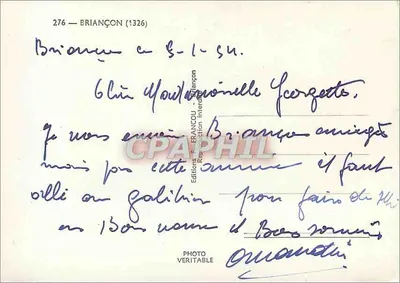 276 — BRIANÇON (1326)
Briançon le 5-1-54.
Chère Mademoiselle Georgette.
Je vous envoie Briançon enneigé
mais pas cette année il faut
allé au galibier pour faire du ski
un Bon
et Bon
Editions F. FRANCOU - Briançon
Reproduction Interdite
CPAPHIL
PHOTO
VERITABLE